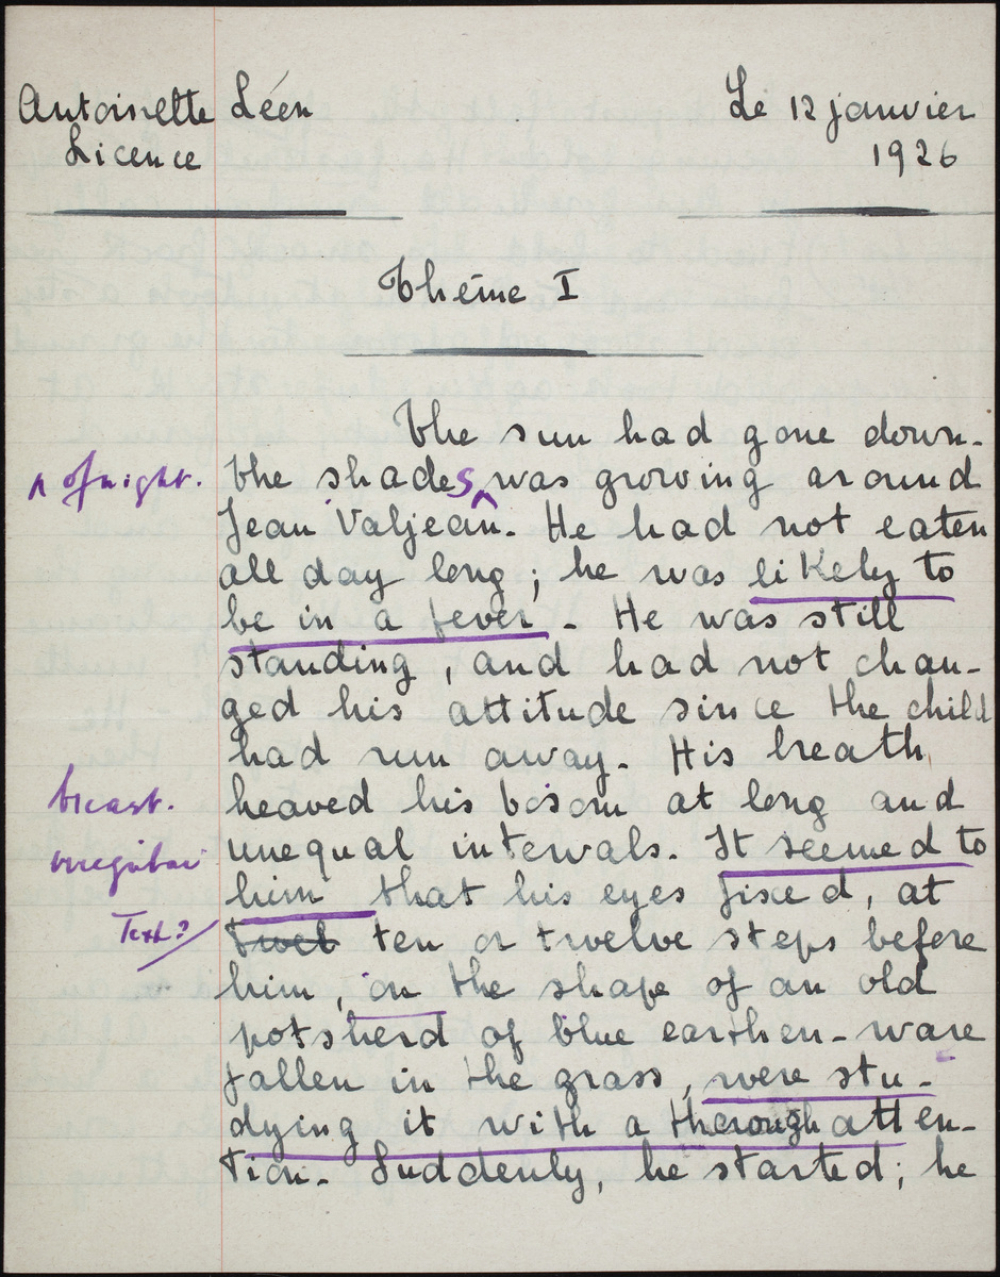 Antoinette Léen
Licence
Le 12 janvier
1926
Thème I
The sun had gone down.
^ of night. The shades ^ was growing around
Jean Valjean. He had not eaten
all day long ; he was likely to
be in a fever. He was still
standing, and had not chan-
ged his attitude since the child
had run away. His breath
breast. heaved his bosom at long and
irregular unequal intervals. It seemed to
him that his eyes fixed, at
Text? twel ten or twelve steps before
him, on the shape of an old
potsherd of blue earthen-ware
fallen in the grass, were stu-
dying it with a thorough atten-
tion. Suddenly, he started; he